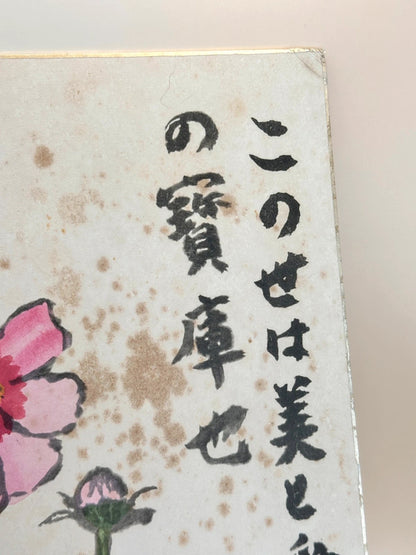 この世は美と
の寶庫也